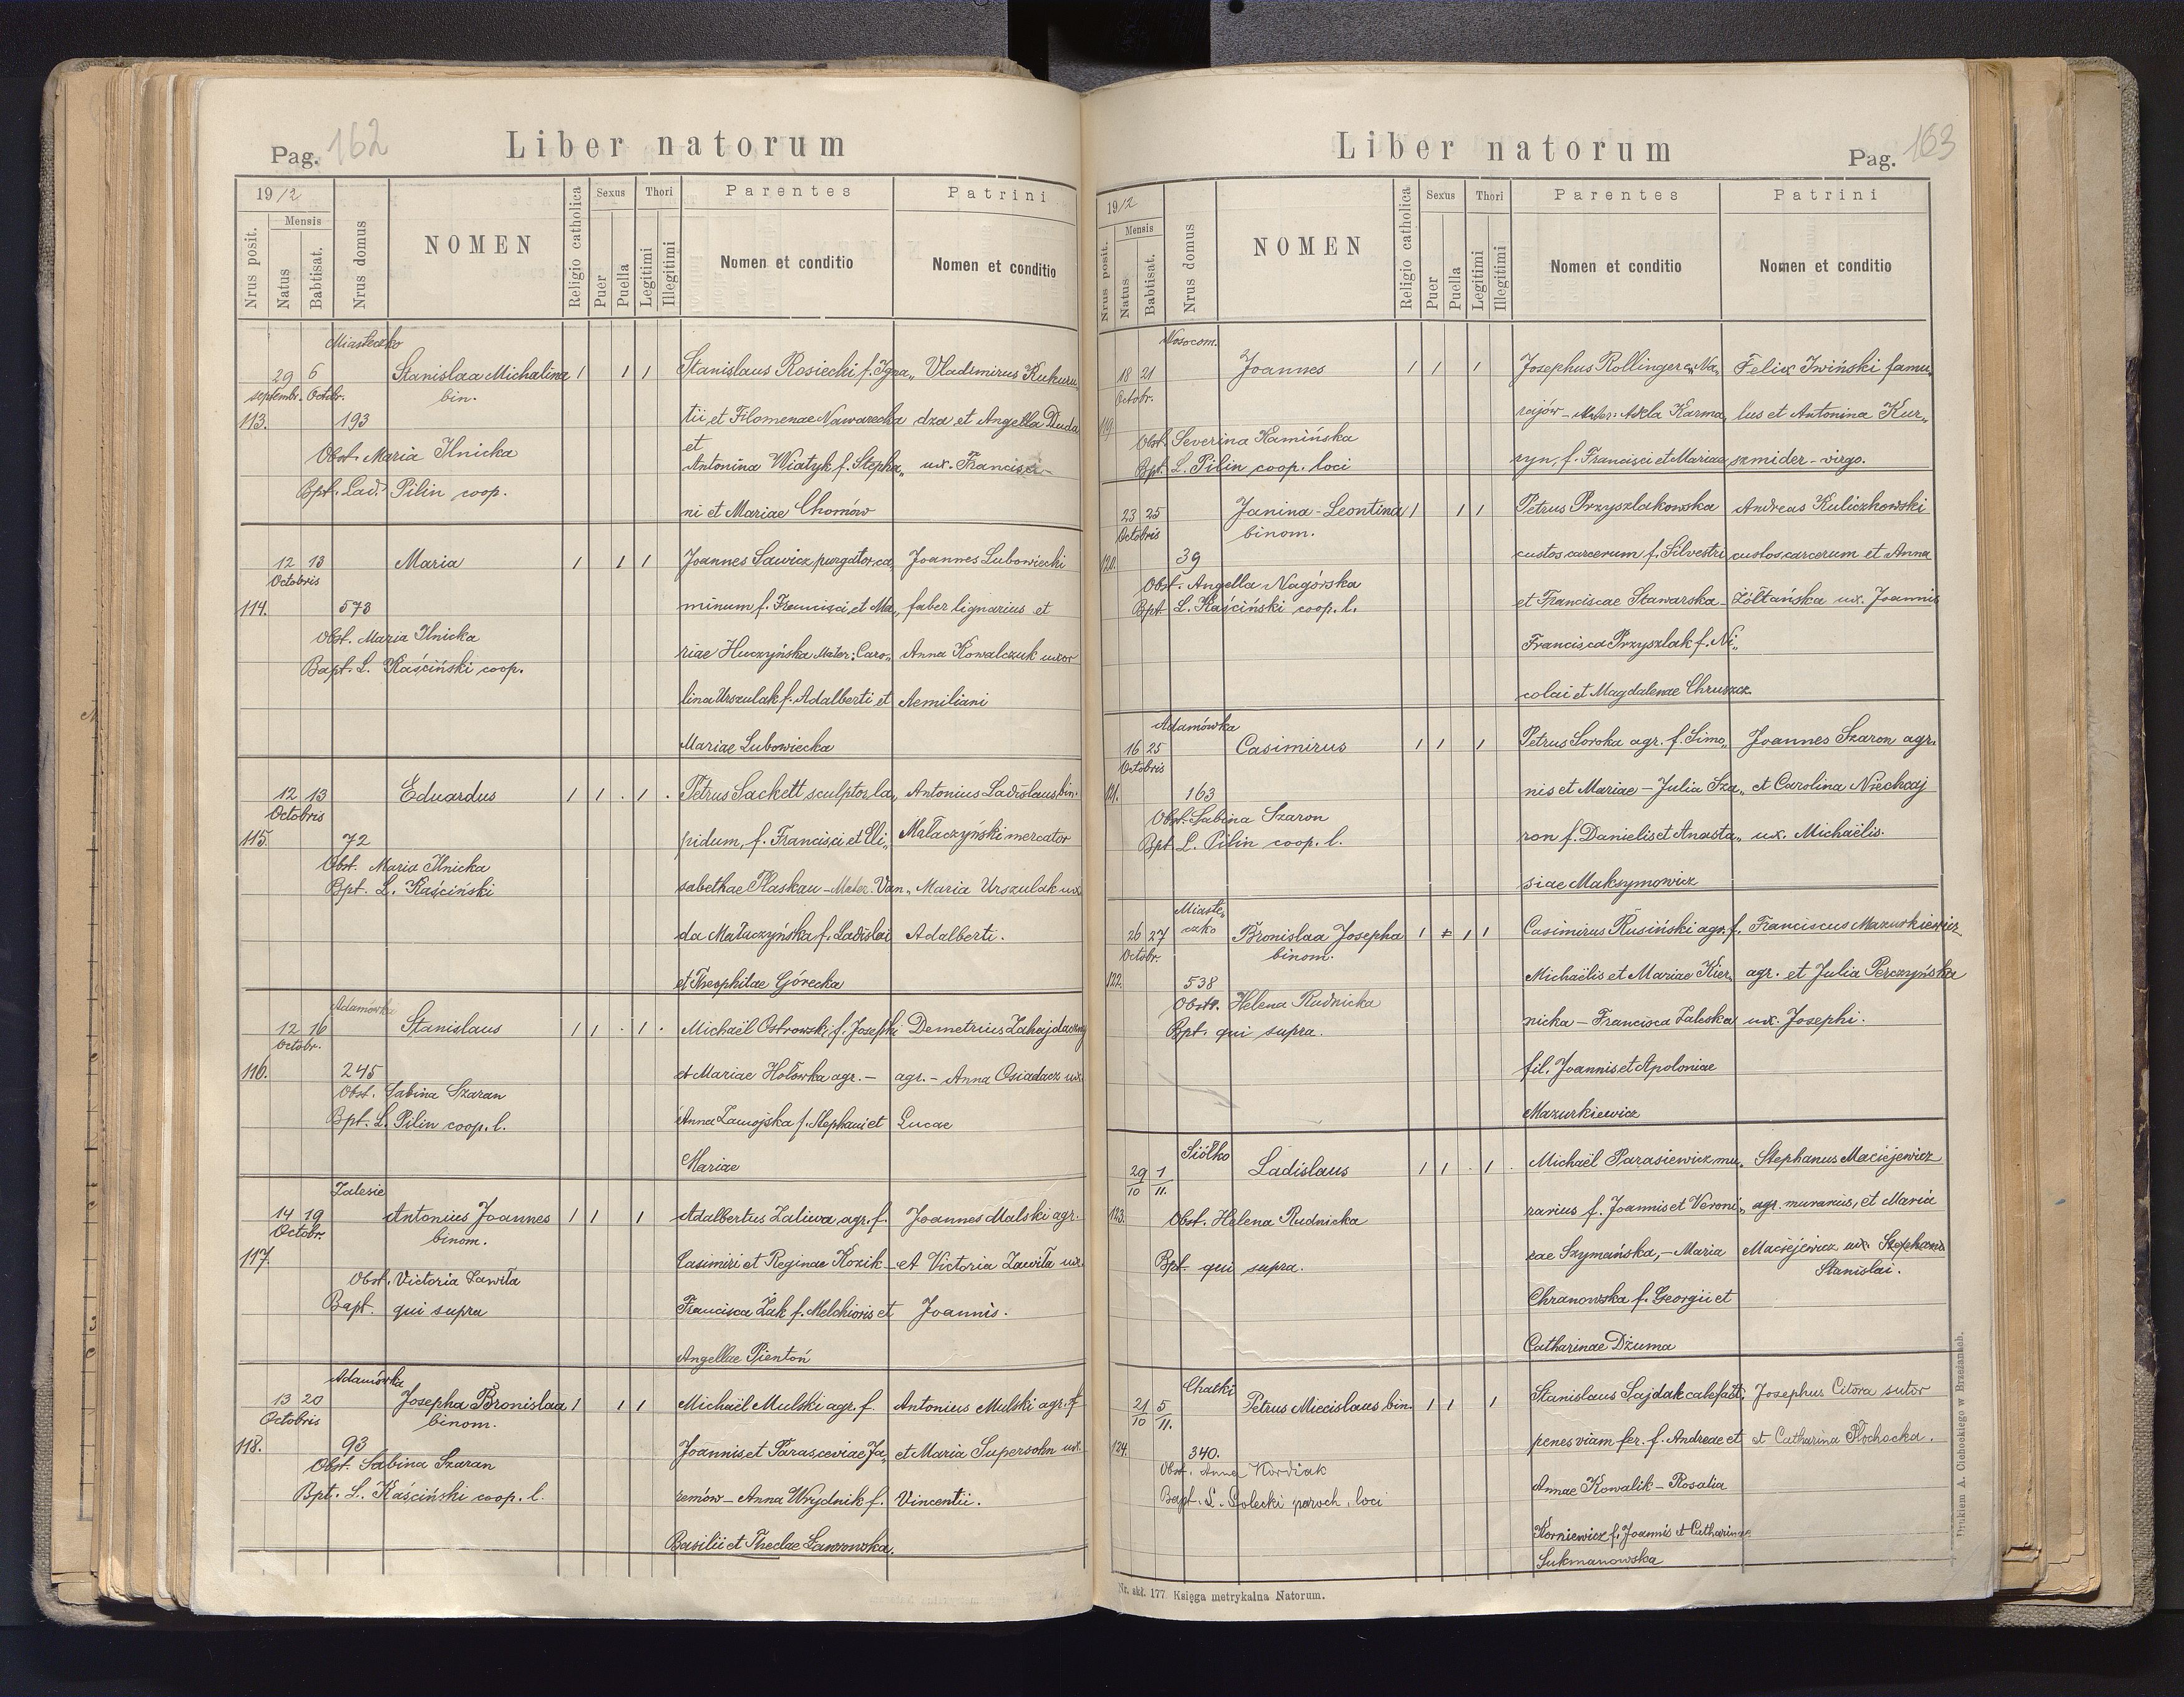 Pag. 162
Liber natorum
1912
Nrus posit.
Mensis
Natus
Babtisat.
Nrus domus
NOMEN
Religio catholica
Sexus
Puer
Puella
Thori
Legitimi
Illegitimi
Parentes
Nomen et conditio
Patrini
Nomen et conditio
Miasteczko
29 6 Stanislaa Michalina 1 1 1 Stanislaus Rosiecki f. Igna„ Vladimirus Kukuru„
septembr. Octobr. bin.
113. 193 tii et Filomenae Nawarecka dza et Angella Duda
et
Obst. Maria Ilnicka Antonina Wiatyk f. Stepha„ ux. Francisci
Bpt. Lad. Pilin coop. ni et Mariae Chomów
12 13 Maria 1 1 1 Joannes Sawicz purgator, ca„ Joannes Lubowiecki
Octobris
114. 573 minum f. Francisci et Ma„ faber lignarius et
Obst. Maria Ilnicka riae Huczyńska Mater: Caro„ Anna Kowalczuk uxor
Bapt. L. Kaściński coop. lina Urszulak f. Adalberti et Aemiliani
Mariae Lubowiecka
12 13 Eduardus 1 1 . 1 . Petrus Sackett sculptor la„ Antonius Ladislaus bin.
Octobris
115. 72 pidum, f. Francisci et Eli„ Małaczyński mercator
Obst. Maria Ilnicka
Bpt. L. Kaściński sabethae Plaskau - Mater. Van„ Maria Urszulak ux
da Małaczyńska f. Ladislai Adalberti.
et Theophilae Górecka
Adamówka
12 16 Stanislaus 1 1 . 1 . Michaël Ostrowski f. Josephi Demetrius Zahajdaczny
Octobr.
116. 245 et Mariae Hołówka agr. - agr. - Anna Osiadacz ux.
Obst. Sabina Szaran
Bpt. L. Pilin coop. l. Anna Zamojska f. Stephani et Lucae
Mariae
Zalesie
14 19 Antonius Joannes 1 1 1 Adalbertus Zaliwa agr. f. Joannes Malski agr.
Octobr. binom.
117. Casimiri et Reginae Kozik - et Victoria Zawiła ux.
Obst. Victoria Zawiła
Bapt. qui supra Francisca Żak f. Melchioris et Joannis.
Angellae Pientoń
Adamówka
13 20 Josepha Bronislaa 1 1 1 Michaël Mulski agr. f. Antonius Mulski agr. f
Octobris binom.
118. 93 Joannis et Parasceviae Ja„ et Maria Supersohn ux.
Obst. Sabina Szaran
Bpt. L. Kaściński coop. l. remów - Anna Wrydnik f. Vincentii.
Basilii et Theclae Ławrowska.
Liber natorum
Pag. 163
1912
Nrus posit.
Mensis
Natus
Babtisat.
Nrus domus
NOMEN
Religio catholica
Sexus
Puer
Puella
Thori
Legitimi
Illegitimi
Parentes
Nomen et conditio
Patrini
Nomen et conditio
Nosocom.
18 21 Joannes 1 1 1 Josephus Rollinger Na„ Felix Iwiński famu„
Octobr.
119. rajów - Mater: Adela Karma„ lus et Antonina Kur„
Obst. Severina Kamińska
Bpt. L. Pilin coop. loci ryn, f. Francisci et Mariae szmider - virgo.
23 25 Janina - Leontina 1 1 1 Petrus Przyszlakowska Andreas Kuliczkowski
Octobris binom.
120. 39 custos carcerum f. Silvestri custos, carcerum et Anna
Obst. Angella Nagórska
Bpt L. Kaściński coop. l. et Franciscae Stawarska - Żółtańska ux. Joannis
Francisca Przyszlak f. Ni„
colai et Magdalenae Chruszcz.
Adamówka
16 25 Casimirus 1 1 1 Petrus Soroka agr. f. Simo„ Joannes Szaron agr.
Octobris
121. 163 nis et Mariae - Julia Sza„ et Carolina Niechaj
Obst. Sabina Szaron
Bpt L. Pilin coop. l. ron f. Danielis et Anasta„ ux. Michaëlis.
siae Maksymowicz
Miaste„
czko
26 27 Bronislaa Josepha 1 1 1 Casimirus Rusiński agr. f. Franciscus Mazurkiewicz
Octobr. binom.
122. 538 Michaëlis et Mariae Kier„ agr. et Julia Perczyńska
Obstr. Helena Rudnicka
Bpt. qui supra. nicka - Francisca Zaleska ux. Josephi.
fil. Joannis et Apoloniae
Mazurkiewicz
Siółko
29/10 1/11. Ladislaus 1 1 . 1 . Michaël Parasiewicz mu„ Stephanus Maciejewicz
123. Obst. Helena Rudnicka rarius f. Joannis et Veroni„ agr. murarius, et Maria
Bpt. qui supra. cae Szymańska, - Maria Maciejewicz ux. Stephani
Stanislai.
Chranowska f. Georgii et
Catharinae Dżuma
Chatki
21/10 5/11. Petrus Miecislaus bin. 1 1 1 Stanislaus Sajdak calefact. Josephus Citora sutor
124. 340. penes viam fer. f. Andreae et et Catharina Płochocka.
Obst. Anna Kordiak
Bapt. L. Solecki paroch. loci Annae Kowalik - Rosalia
Korniewicz f. Joannis et Catharinae
Sukmanowska
Nr. skł. 177 Księga metrykalna Natorum.
Drukiem A. Cichockiego w Brzeżanach.